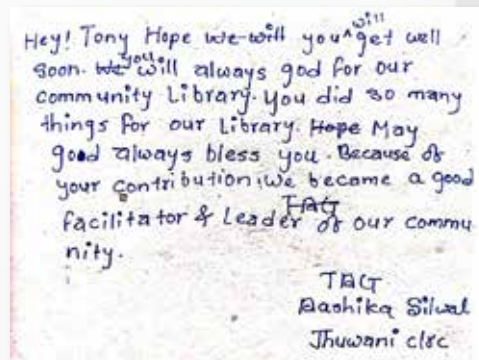 Hey! Tony Hope we will you will get well
soon. We you will always god for our
community Library. You did so many
things for our Library. Hope May
good always bless you. Because of
your contribution, we became a good
facilitator & Leader TAG of our commu
nity.
TAG
Aashika Silwal
Jhuwani clrc